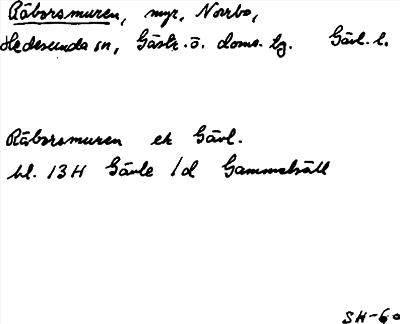 Råborsmuren, myr, Norrbo,
Hedesunda sn, Gästr. ö. doms. tg. Gävl. l.
Råborsmuren ek Gävl.
bl. 13 H Gävle 1d Gammelsäll
SH-60